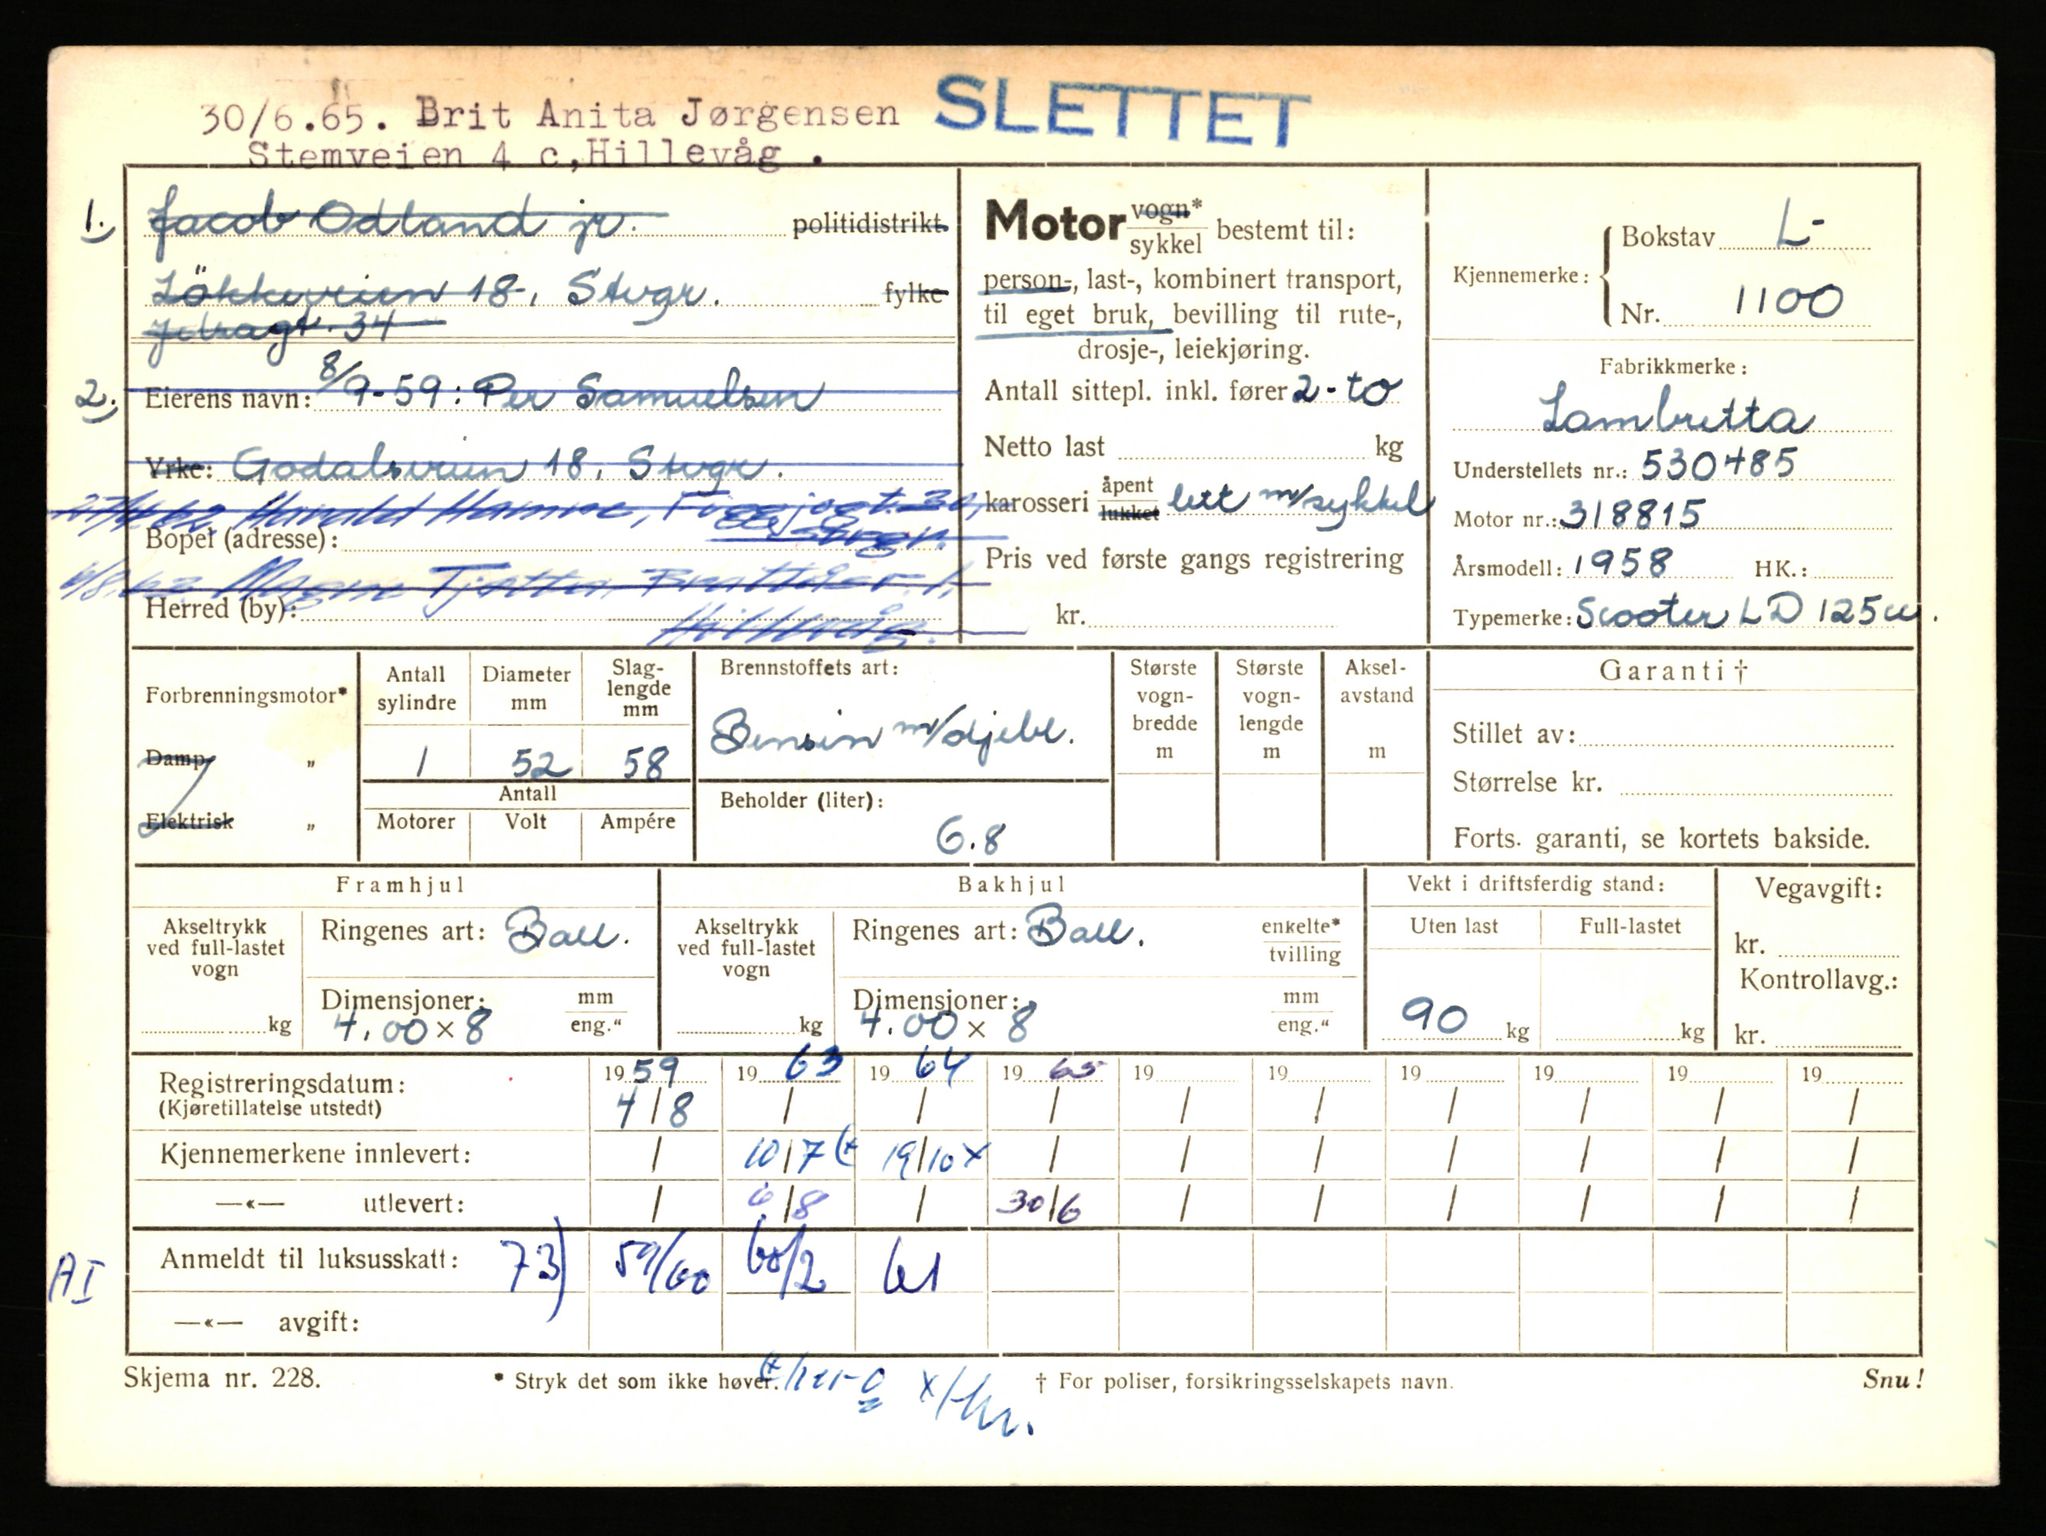 SLETTET
30/6.65. Brit Anita Jørgensen
Stemveien 4 c, Hillevåg .
1. Jacob Odland jr. politidistrikt
Lökkeveien 18, Stvgr. fylke
34
2. Eierens navn: 8/9-59: Per Samuelsen
Yrke: Godalsveien 18, Stvgr.
Harald
Bopel (adresse):
6/8.63 Magne Tjøtta, 1,
Herred (by): Hillevåg.
Motor vogn* sykkel bestemt til:
person-, last-, kombinert transport,
til eget bruk, bevilling til rute-,
drosje-, leiekjøring.
Antall sittepl. inkl. fører 2-to
Netto last kg
karosseri åpent lukket lett m/sykkel
Pris ved første gangs registrering
kr.
Kjennemerke: Bokstav L-
Nr. 1100
Fabrikkmerke:
Lambretta
Understellets nr.: 530485
Motor nr.: 318815
Årsmodell: 1958 HK.:
Typemerke: Scooter LD 125cc.
Forbrenningsmotor*
Damp „
Elektrisk „
Antall sylindre Diameter mm Slag-lengde mm
1 52 58
Antall
Motorer Volt Ampére
Brennstoffets art:
Bensin m/oljebl.
Beholder (liter):
6.8
Største vogn-bredde m
Største vogn-lengde m
Aksel-avstand m
Garanti †
Stillet av:
Størrelse kr.
Forts. garanti, se kortets bakside.
Framhjul
Akseltrykk ved full-lastet vogn kg
Ringenes art: Ball.
Dimensjoner: mm eng."
4.00 x 8
Bakhjul
Akseltrykk ved full-lastet vogn kg
Ringenes art: Ball. enkelte* tvilling
Dimensjoner: mm eng."
4.00 x 8
Vekt i driftsferdig stand:
Uten last Full-lastet
90 kg kg
Vegavgift:
kr.
Kontrollavg.:
kr.
Registreringsdatum: 1959 19 63 19 64 19 65 19 19 19 19 19 19
(Kjøretillatelse utstedt) 4/8 / / / / / / / / /
Kjennemerkene innlevert: / 10/7 (+ 19/10 x / / / / / / /
—«— utlevert: / 6/8 / 30/6 / / / / / /
AI Anmeldt til luksusskatt: 73) 59/60 60/2 61
—«— avgift:
Skjema nr. 228. * Stryk det som ikke høver. † For poliser, forsikringsselskapets navn. Snu!